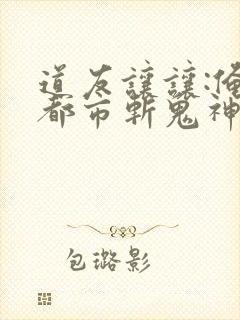 道友讓讓:俺
都市斬鬼神
包璐影